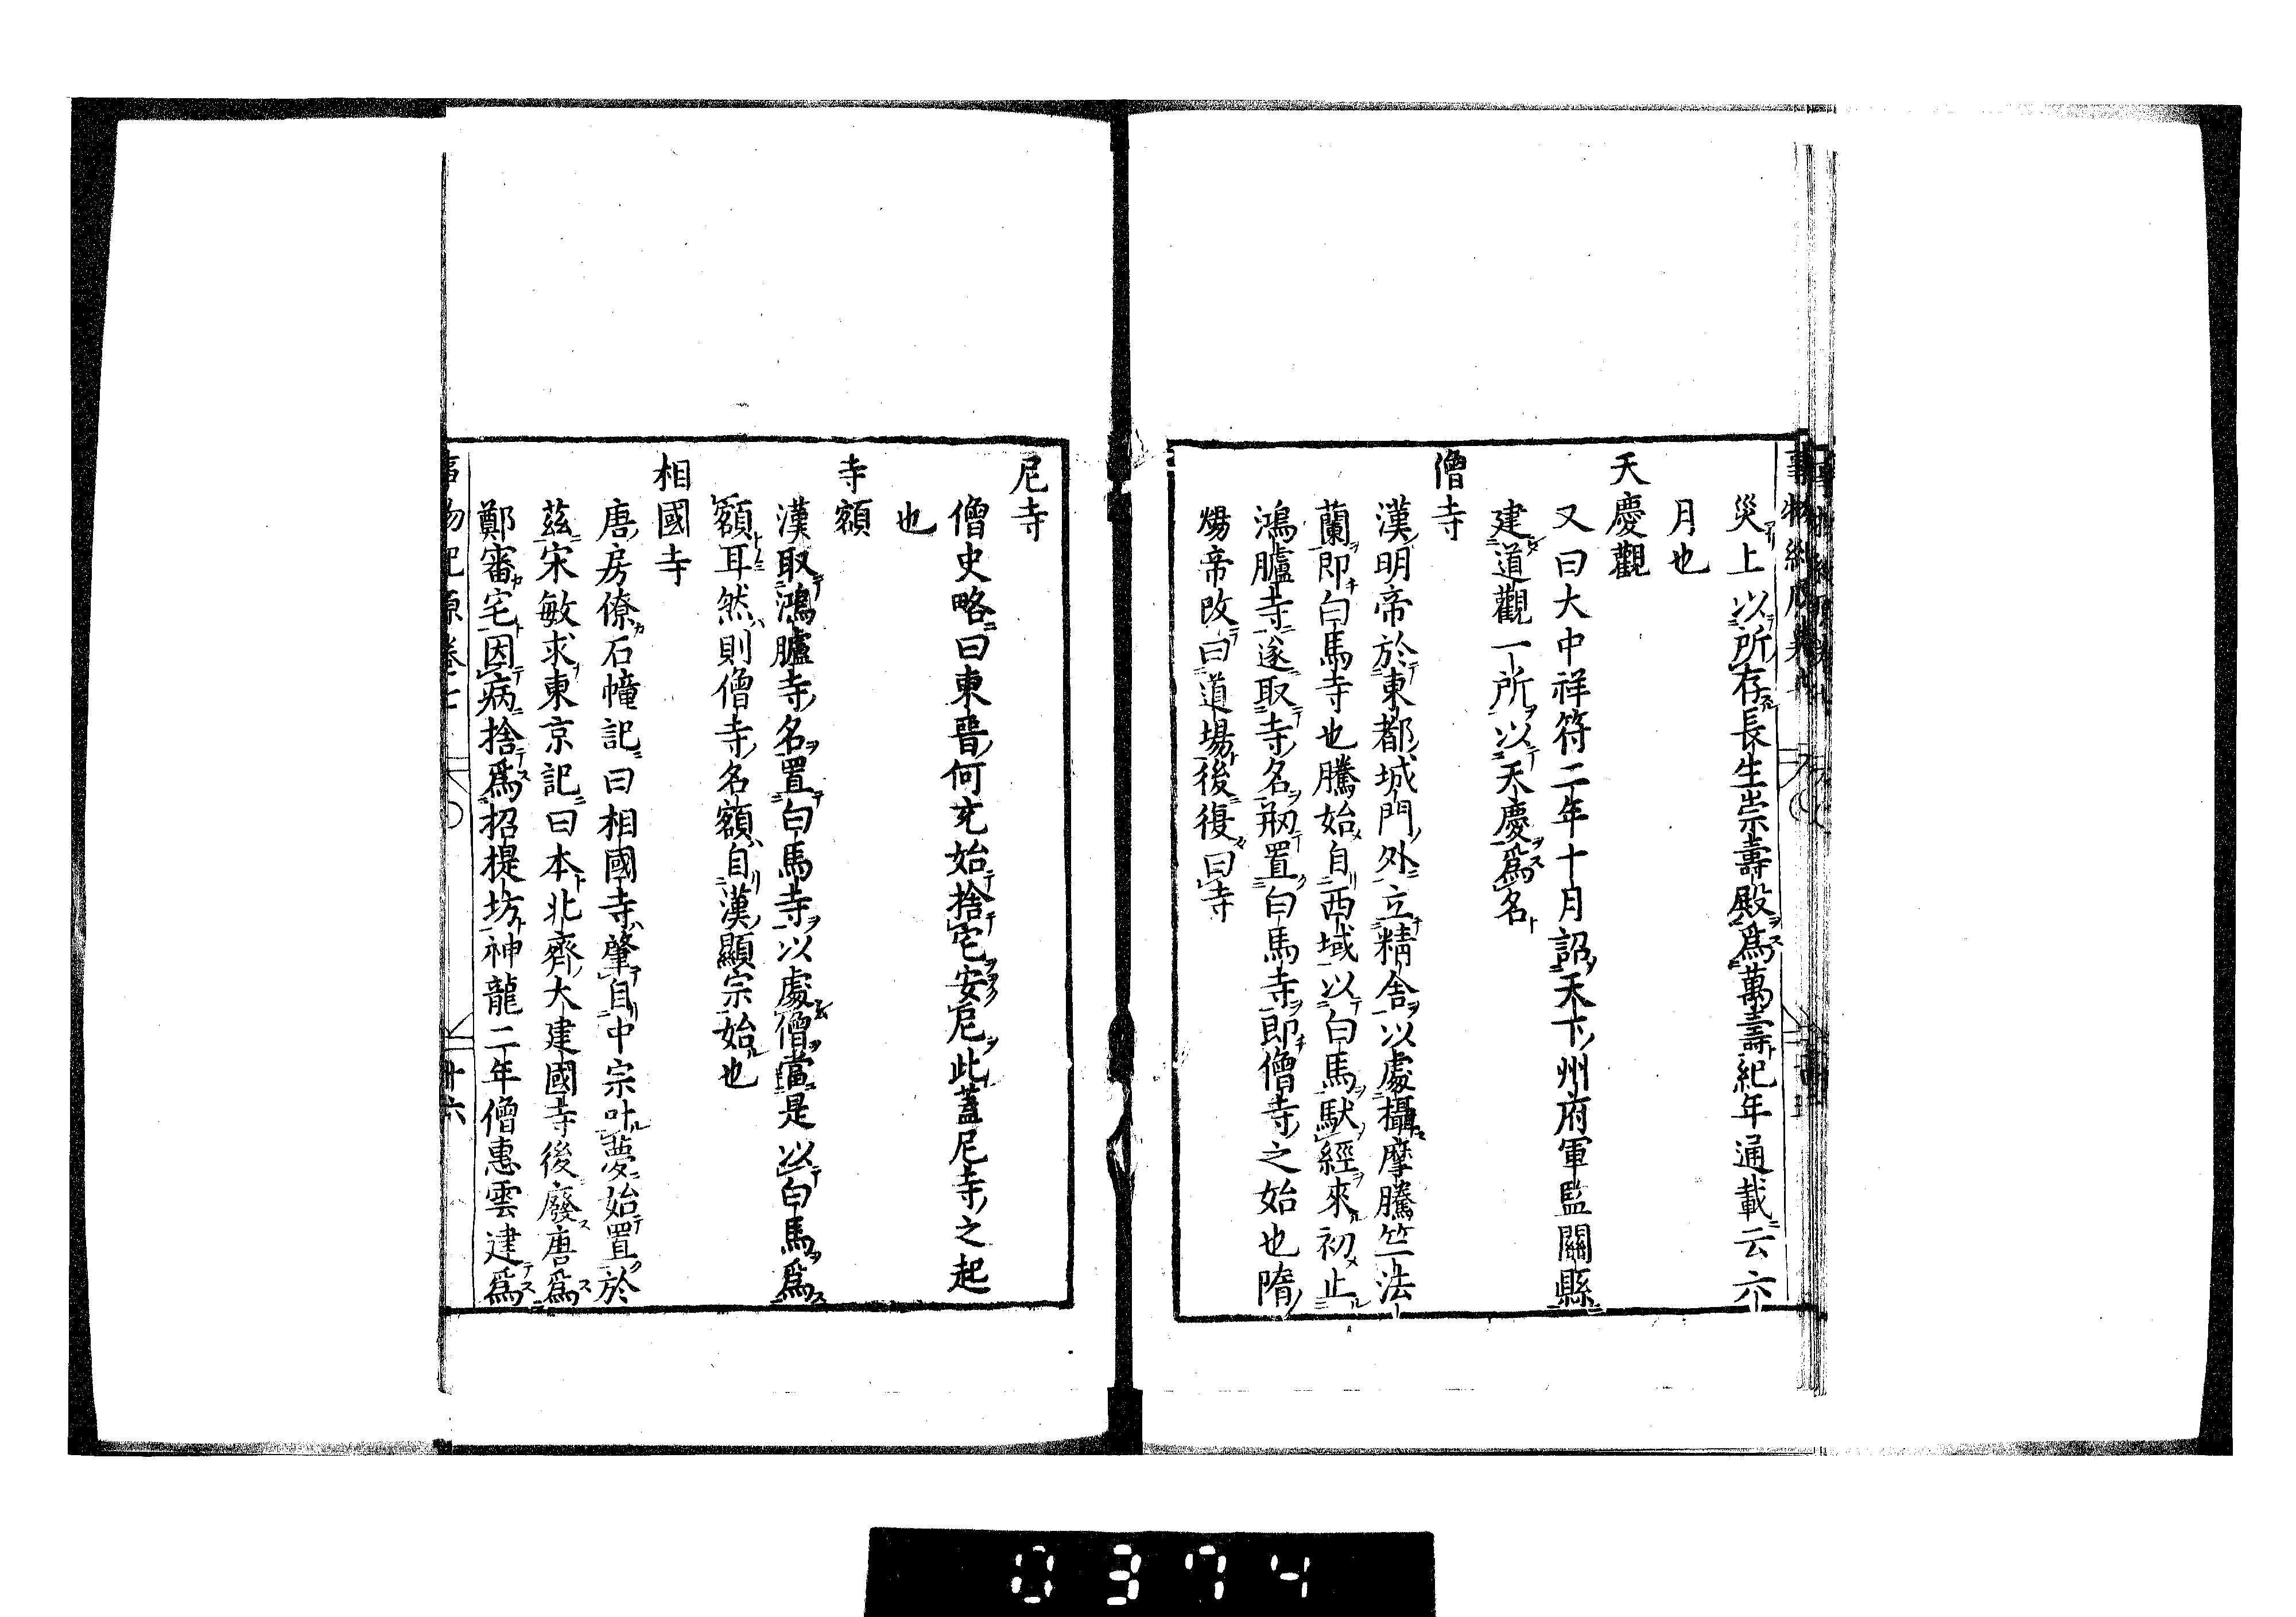 災上以所存長生崇壽殿爲萬壽紀年通載云六
月也
天慶觀
又曰大中祥符二年十月詔天下州府軍監關縣
建道觀一所以天慶爲名
僧寺
漢明帝於東都城門外立精舍以處攝摩騰竺法
蘭即白馬寺也騰始自西域以白馬馱經來初止
鴻臚寺遂取寺名剏置白馬寺即僧寺之始也隋
煬帝改曰道場後復曰寺
尼寺
僧史略曰東晉何充始捨宅安尼此蓋尼寺之起
也
寺額
漢取鴻臚寺名置白馬寺以處僧當是以白馬爲
額耳然則僧寺名額自漢顯宗始也
相國寺
唐房僚石幢記曰相國寺肇自中宗叶夢始置於
茲宋敏求東京記曰本北齊大建國寺後廢唐爲
鄭審宅因病捨爲招提坊神龍二年僧惠雲建爲
事物紀原卷七
十六
0374